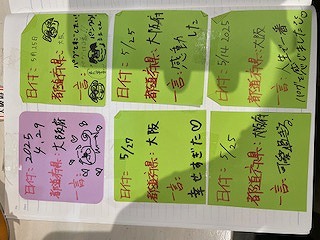 日付: 2025
4.29
都道府県: 大阪府
一言:
日付: 5月15日
都道府県: 大阪
一言:
日付: 5/27
都道府県: 大阪
一言: 幸せすぎた♡
日付: 5/25
都道府県: 大阪府
一言: 感動した
日付: 5/25
都道府県: 大阪府
一言: 可愛過ぎる
日付: 5/14 2025
都道府県: 大阪
一言: 人生で一番
パグを感じました